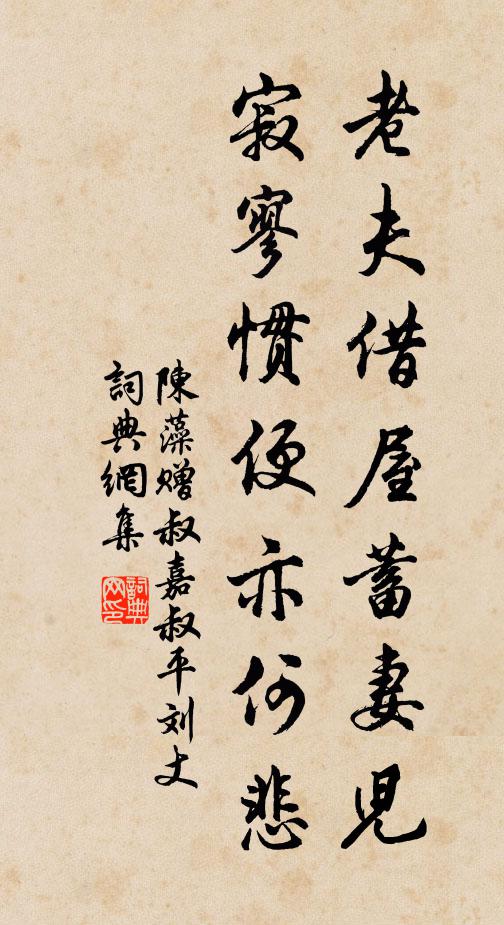 老夫借屋蓄妻児
寂寥慣便亦何悲
陳藻赠叔嘉叔平刘丈
詞典網集
詞典网印